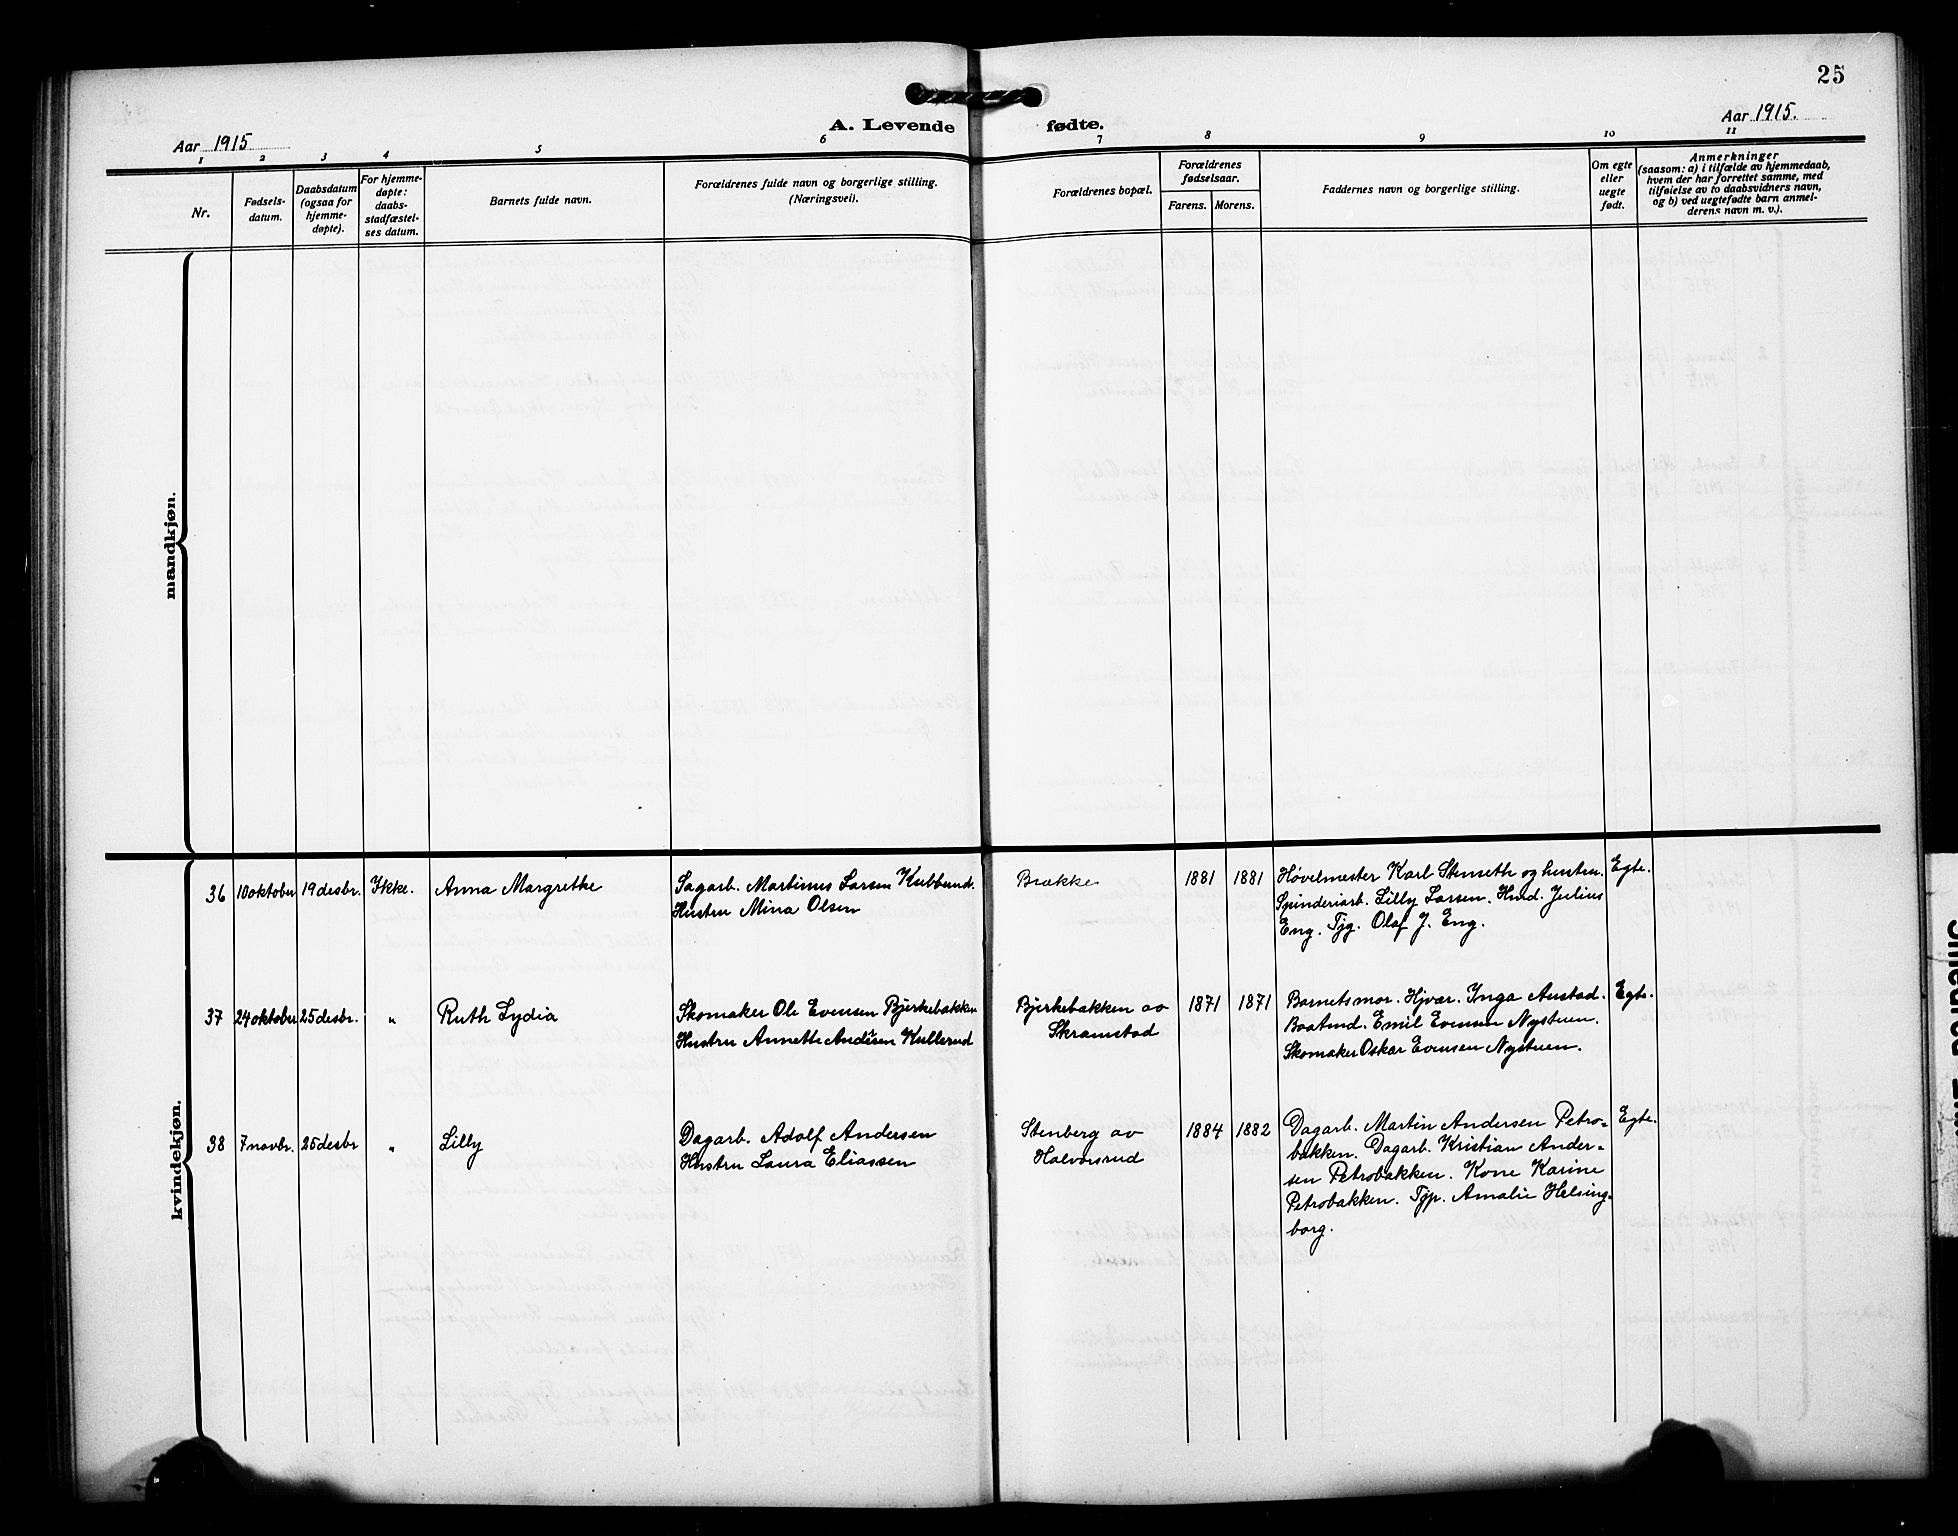 25
Aar 1915
A. Levende fødte.
Aar 1915.
1 2 3 4 5 6 7 8 9 10 11
Nr.
Fødsels-
datum.
Daabsdatum
(ogsaa for
hjemme-
døpte).
For hjemme-
døpte:
daabs-
stadfæstel-
ses datum.
Barnets fulde navn.
Forældrenes fulde navn og borgerlige stilling.
(Næringsvei).
Forældrenes bopæl.
Forældrenes
fødselsaar.
Farens. Morens.
Faddernes navn og borgerlige stilling.
Om egte
eller
uegte
født.
Anmerkninger
(saasom: a) i tilfælde av hjemmedaab,
hvem der har forrettet samme, med
tilføielse av to daabsvidners navn,
og b) ved uegtefødte barn anmel-
derens navn m. v.).
mandkjøn.
kvindekjøn.
36 10 oktober 19 desbr. Ikke. Anna Margrethe
Sagarb. Martinus Larsen Kubberud.
Hustru Mina Olsen
Brække
1881 1881
Høvelmester Karl Stenseth og hustru.
Spinderiarb. Lilly Larsen. Husd. Julius
Eng. Tjg. Olaf J. Eng.
Egte.
37 24 oktober 25 desbr. „ Ruth Lydia
Skomaker Ole Evensen Bjerkebakken
Hustru Annette Andersen Kullerud
Bjerkebakken av
Skramstad
1871 1871
Barnets mor. Hjvær. Inga Austad.
Baatmd. Emil Evensen Nystuen.
Skomaker Oskar Evensen Nystuen.
Egte.
38 7 novbr. 25 desbr „ Lilly
Dagarb. Adolf Andersen
Hustru Laura Eliassen
Stenberg av
Halvorsrud
1884 1882
Dagarb. Martin Andersen Petro-
bakken. Dagarb. Kristian Ander-
sen Petrobakken. Kone Karine
Petrobakken. Tjp. Amalie Helsing-
borg.
Egte.